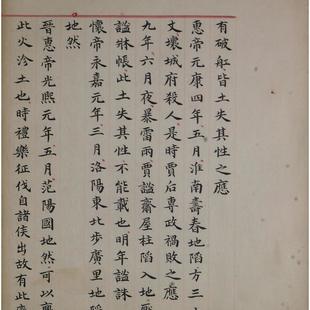 有破舡皆土失其性之應
惠帝元康四年五月淮南壽春地陷方三
丈壞城府殺人是時賈后專政禍敗之應
九年六月夜暴雷雨賈謐齋屋柱陷入地
謐牀帳此土失其性不能載也明年謐誅
懷帝永嘉元年三月洛陽東北步廣里地陷
地然
晉惠帝光熙元年五月范陽國地然可以爨
此火沴土也時禮樂征伐自諸侯出故有此